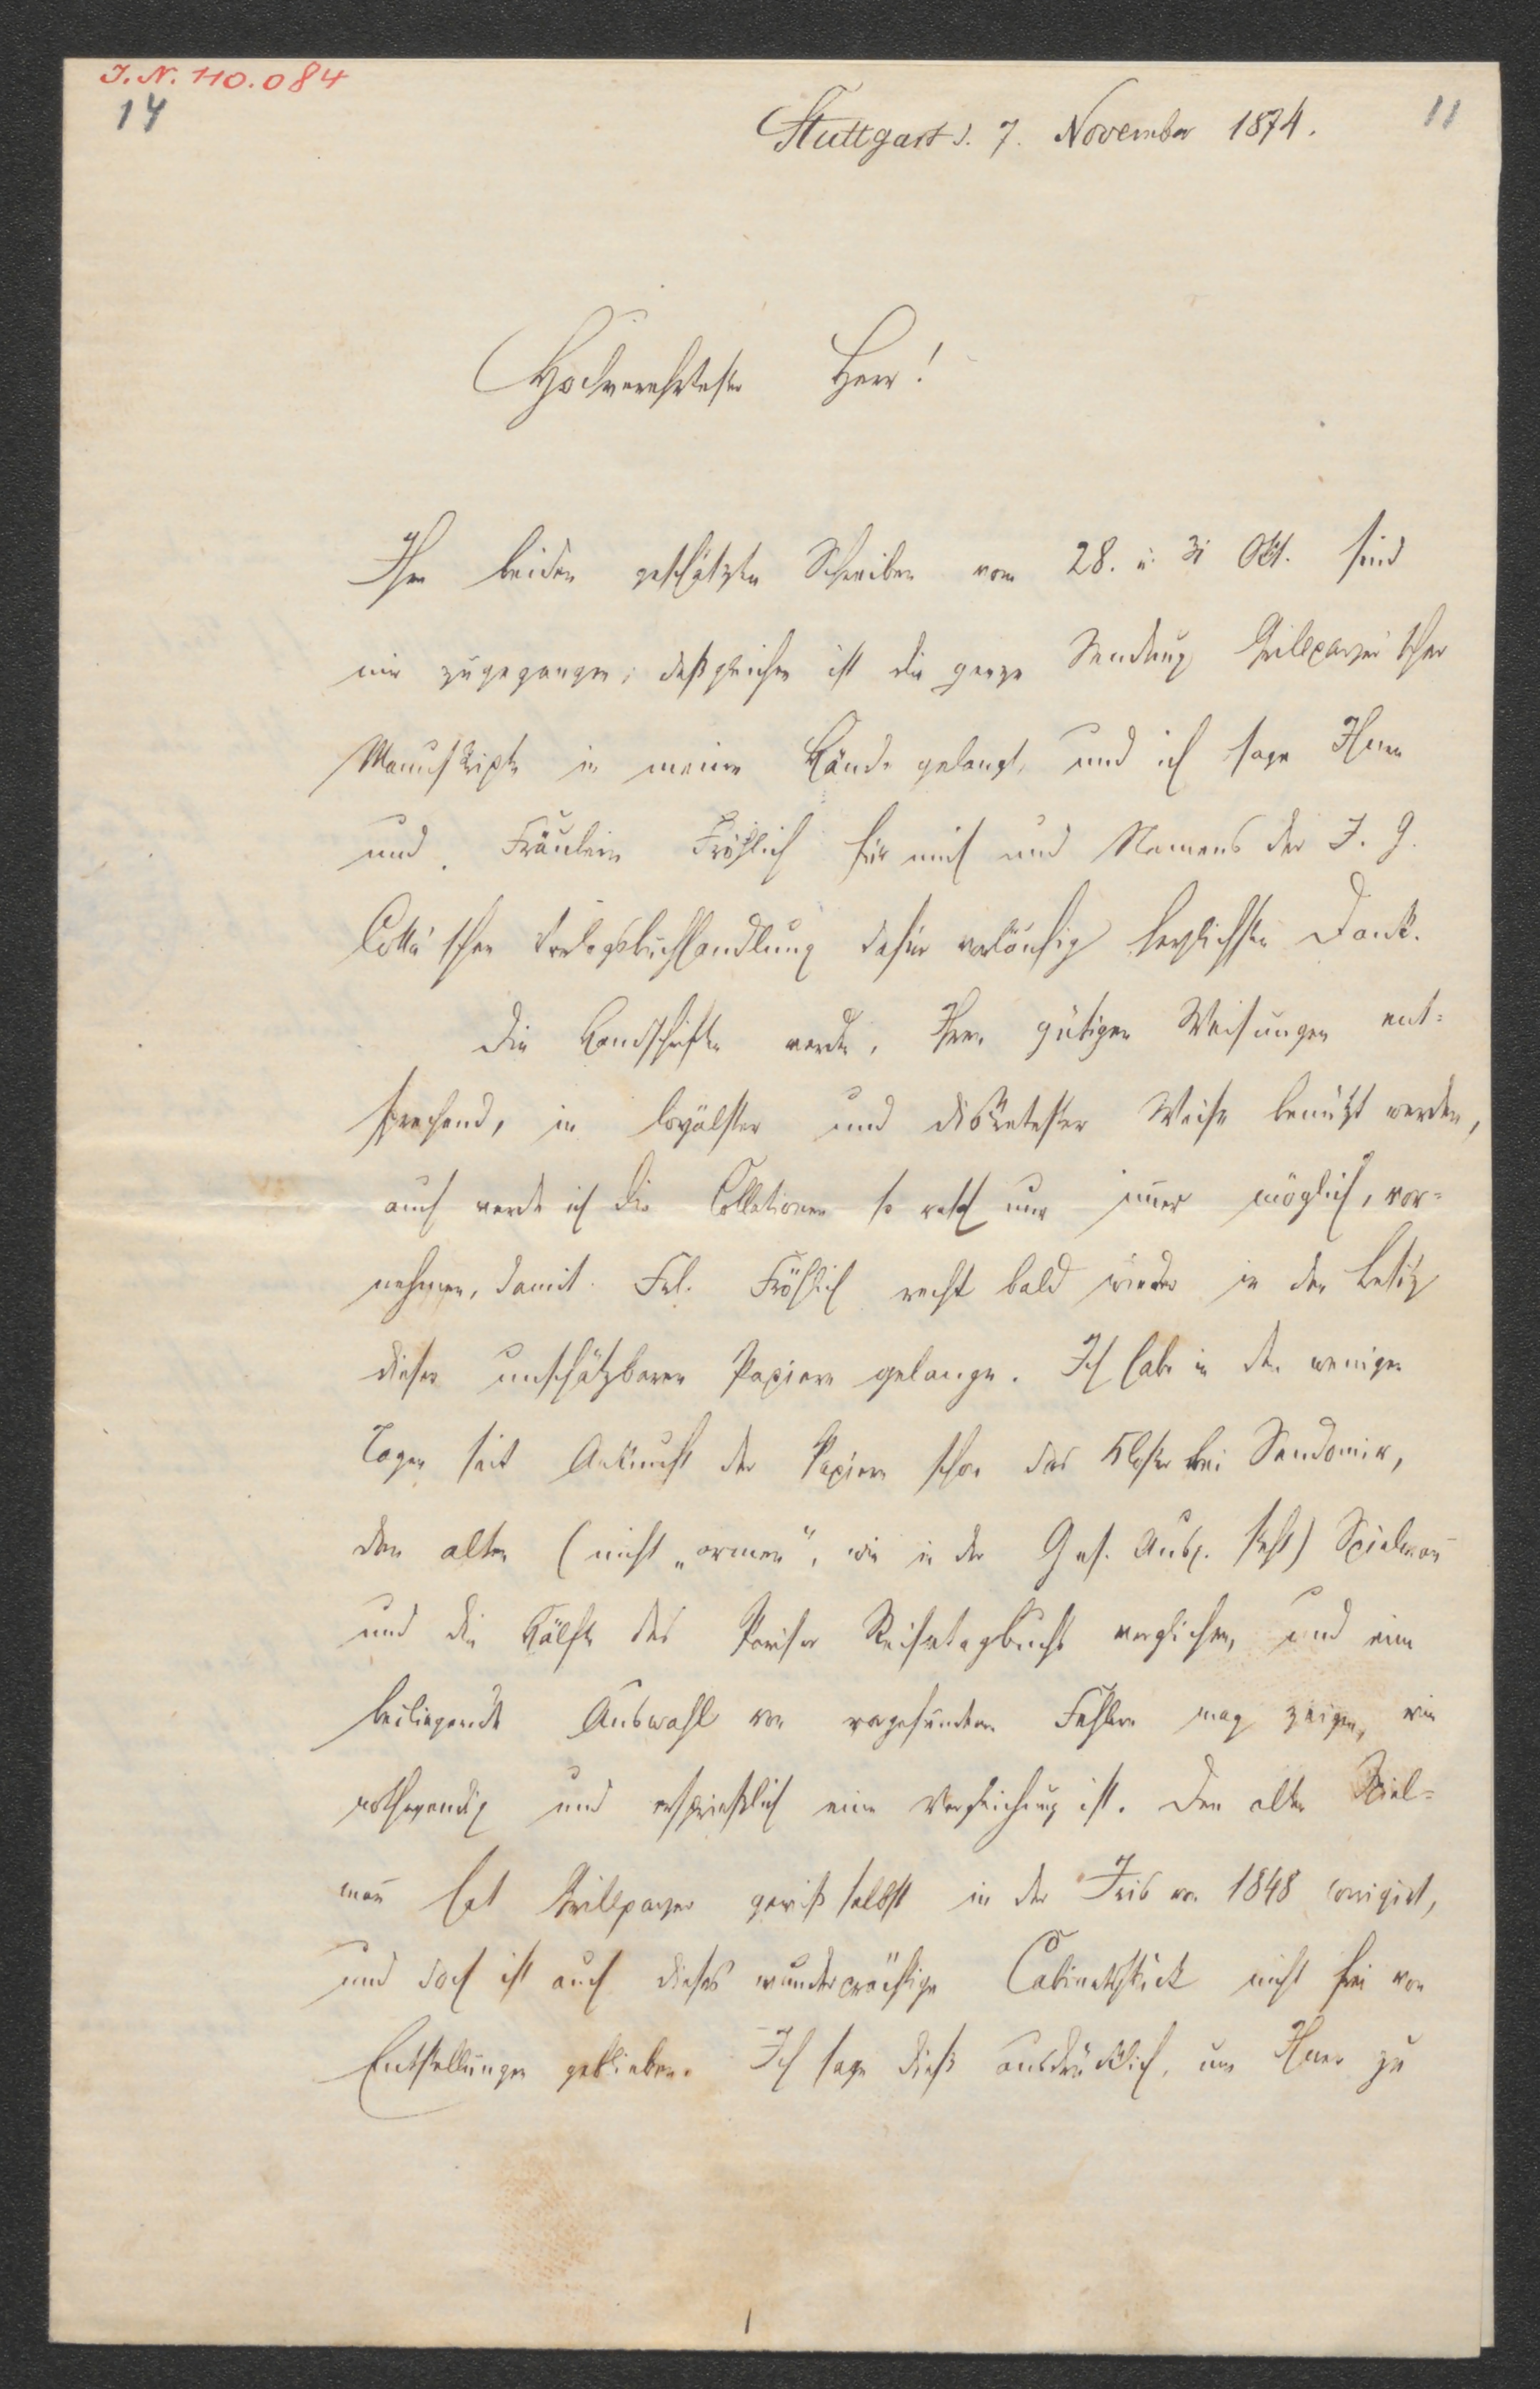 J. N. 110.084
14
11
Stuttgart d. 7. November 1874.
Hochverehrtester Herr!
Ihre beiden geschätzten Schreiben vom 28. u. 31 Okt. sind
mir zugegangen; deßgleichen ist die ganze Sendung Grillparzer'scher
Manuskripte in meine Hände gelangt, und ich sage Ihnen
und Fräulein Fröhlich für mich und Namens der J. G.
Cotta'schen Verlagsbuchhandlung dafür vorläufig herzlichsten Dank.
Die Handschriften werden, Ihren gütigen Weisungen ent=
sprechend, in loyalster und diskretester Weise benützt werden,
auch werde ich die Collationen so rasch nur immer möglich, vor=
nehmen, damit Frl. Fröhlich recht bald wieder in den Besitz
dieser unschätzbaren Papiere gelange. Ich habe in den wenigen
Tagen seit Ankunft der Papiere schon das Kloster bei Sendomir,
den alten (nicht „armen", wie in der Ges. Ausg. steht) Spielmañ
und die Hälfte des Pariser Reisetagbuchs verglichen, und eine
beiliegende Auswahl von vorgefundenen Fehlern mag zeigen, wie
nothwendig und ersprießlich eine Vergleichung ist. Den alten Spiel=
mañ hat Grillparzer gewiß selbst in der Iris von 1848 corrigirt,
und doch ist auch dieses wunderprächtige Cabinetsstück nicht frei von
Entstellungen geblieben. Ich sage dieß ausdrücklich, um Ihnen zu
1